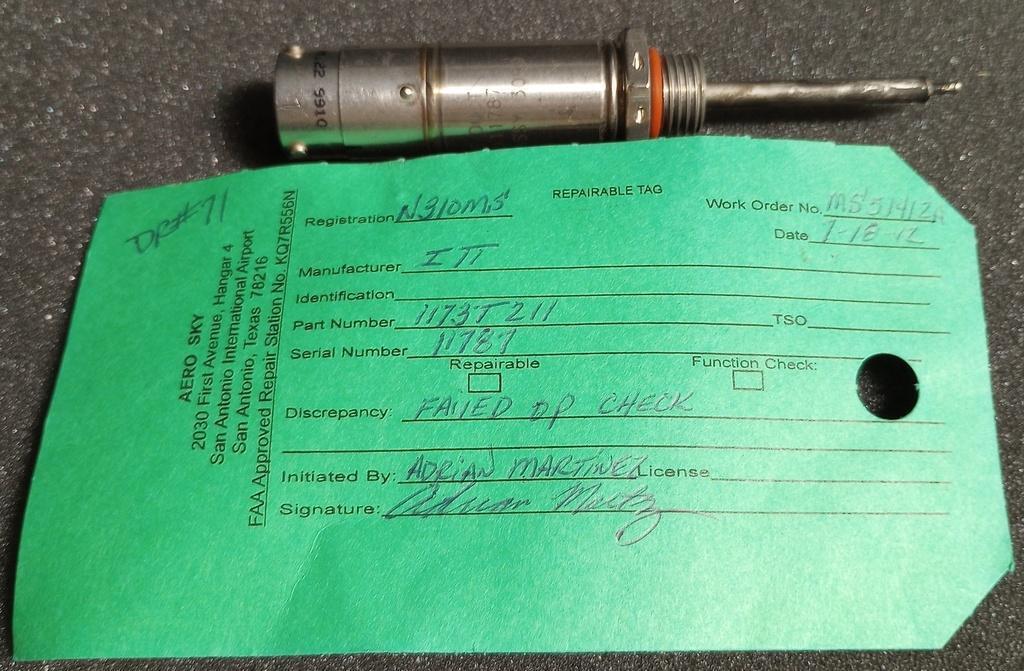 5910
11787
REPAIRABLE TAG
DR#71
Registration N310MS Work Order No. MS51412A
Date 1-18-12
Manufacturer ITT
Identification
Part Number 1173T211 TSO
Serial Number 11787
Repairable Function Check:
Discrepancy: FAILED OP CHECK
Initiated By: ADRIAN MARTINEZ License
Signature: Adrian Martz
AERO SKY
2030 First Avenue, Hangar 4
San Antonio International Airport
San Antonio, Texas 78216
FAA Approved Repair Station No. KQ7R556N